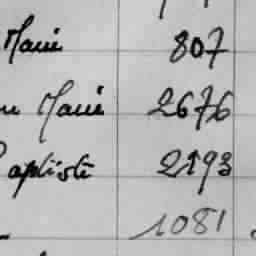 Marie 807
Marie 2676
aptiste 2193
1081